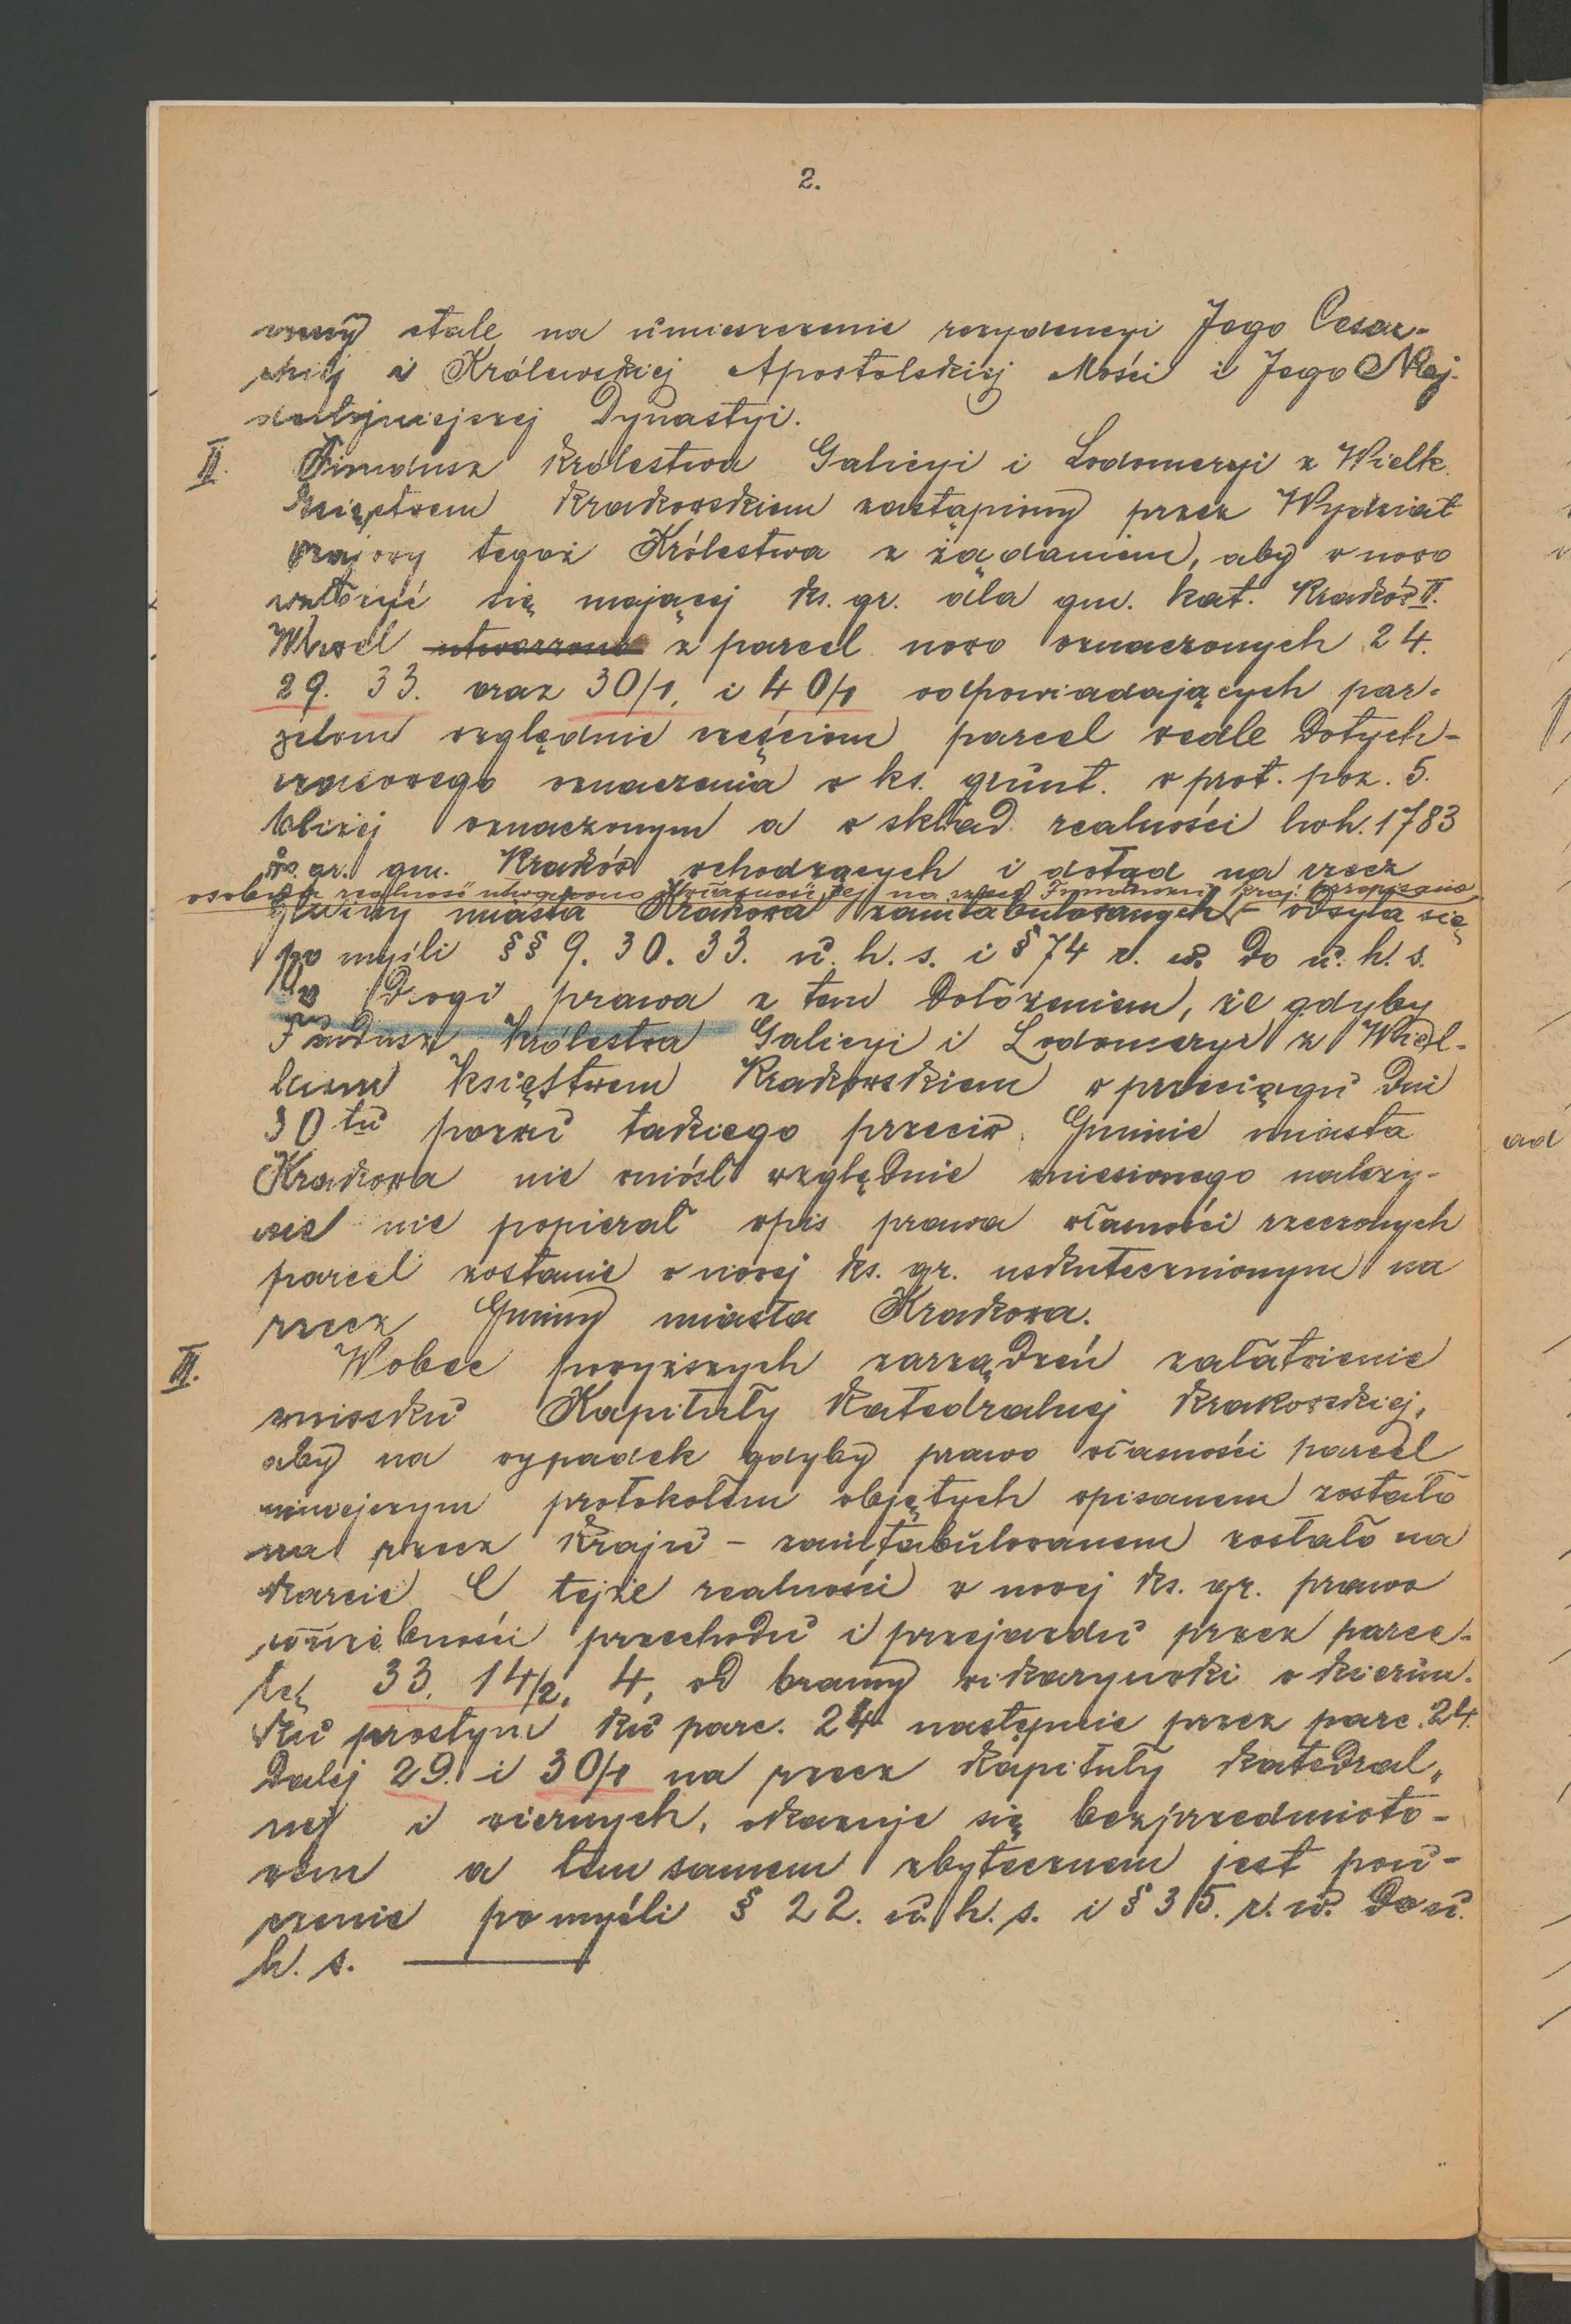 2.
czony stale na umieszczenie rezydencyi Jego Cesar-
skiej i Królewskiej Apostolskiej Mości i Jego Naj-
dostojniejszej Dynastyi.
II. Fundusz Królestwa Galicyi i Lodomeryi z Wielk.
Księstwem Krakowskiem zastąpiony przez Wydział
krajowy tegoż Królestwa z żądaniem, aby w nowo
wtorzyć się mającej ks. gr. dla gm. kat. Kraków II.
Wawel utworzono z parcel nowo oznaczonych 24.
29. 33. oraz 30/1, i 40/1 odpowiadających par-
zelom względnie częściom parcel wedle dotych-
czasowego oznaczenia w ks. grunt. w prot. poz. 5.
bliżej oznaczonym a w skład realności lwh. 1783
ks. gr. gm. Kraków wchodzących i dotąd na rzecz
osobną realność utworzono i własność tej na rzecz Funduszu kraj. przepisano
gminy miasta Krakowa zaintabulowanych - odsyła się
po myśli §§ 9. 30. 33. u. h. s. i § 74 r. w. do u. h. s.
do drogi prawa z tem dołożeniem, że gdyby
Fundusz Królestwa Galicyi i Lodomeryi z Wiel-
kiem Księstwem Krakowskiem w przeciągu dni
30 tu pozwu takiego przeciw Gminie miasta
Krakowa nie wniósł względnie wniesionego należy-
cie nie popierał wpis prawa własności rzeczonych
parcel zostanie w nowej ks. gr. uskutecznionym na
rzecz Gminy miasta Krakowa.
III. Wobec powyższych zarządzeń załatwienie
wniosku Kapituły Katedralnej Krakowskiej,
aby na wypadek gdyby prawo własności parcel
niniejszym protokołem objętych wpisanem zostało
na rzecz Kraju - zaintabulowanem zostało na
karcie C tejże realności w nowej ks. gr. prawo
służebności przechodu i przejazdu przez parce-
lę 33. 14/2, 4, od bramy wikaryówki w kierun-
ku prostym ku parc. 24 następnie przez parc. 24.
Dalej 29. i 30/1 na rzecz Kapituły Katedral-
nej i wiernych, okazuje się bezprzedmioto-
wem a tem samem zbytecznem jest pou-
czenie po myśli § 22. u. h. s. i § 35. r. w. do u.
h. s.
ad